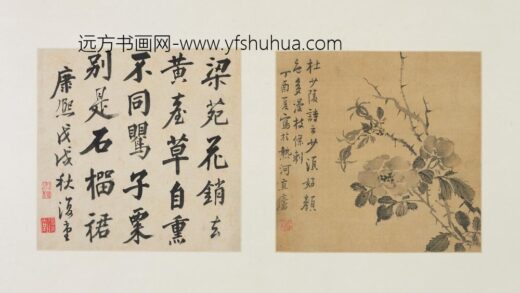 远方书画网-www.yfshuhua.com
梁苑花銷玄
黃臺草自熏
不同鸎子粟
別是石榴裙
康熙戊戌秋
杜少陵詩云少須好顏
色多漫枝條剩
丁酉夏寫於熱河直廬